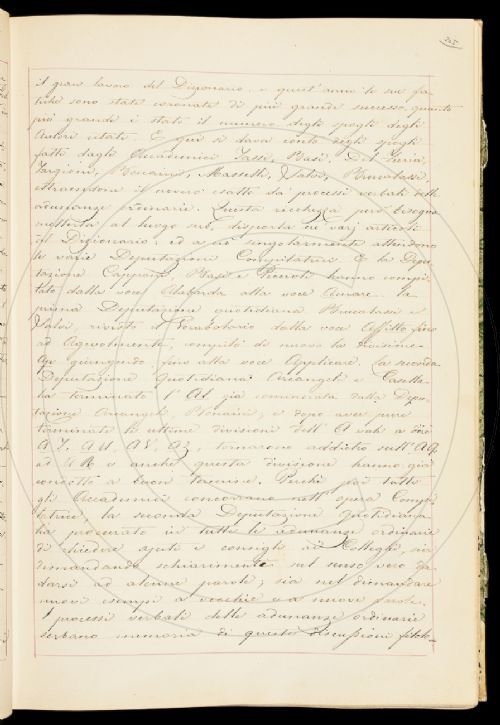 265
il gran lavoro del Dizionario, e quest'anno le sue fa-
tiche sono state coronate di più grande successo, quanto
più grande è stato il numero degli spogli degli
Autori citati. E qui si dava conto degli spogli
fatti dagli Accademici Tassi, Basi, Del Furia,
Targioni, Boccardi, Masselli, Valori, Brucalassi,
estraendone il novero esatto da' processi verbali delle
adunanze ordinarie. Questa ricchezza però bisogna
metterla al luogo suo, disporla ne' varj articoli
del Dizionario; ed a ciò singolarmente attendono
le varie Deputazioni Compilatrici. E la Depu-
tazione Capponi, Basi e Piccioli hanno compi-
lato dalla voce alla voce Acuare. La
prima Deputazione quotidiana Brucalassi e
Valori, rivisto il Vocabolario dalla voce Affitto fino
ad Agevolmente, compilò di nuovo la divisione
Ap giungendo fino alla voce Applicare. La seconda
Deputazione Quotidiana Arcangeli e Casella
ha terminato l'At già cominciata dalla Depu-
tazione Arcangeli, Niccolini; e dopo aver pure
terminate le ultime divisioni dell'A vale a dire
AT, AU, AV, AZ, tornarono addietro sull'AQ
ed AR e anche questa divisione hanno già
condotta a buon termine. Perchè poi tutti
gli Accademici concorrano nell'opera Compi-
latrice, la seconda Deputazione Quotidiana
ha procurato in tutte le adunanze ordinarie
di chiedere ajuti e consigli ai Colleghi, sia
dimandando schiarimenti sul senso vero da
darsi ad alcune parole; sia nel dimandare
nuovi esempi a vecchie e a nuove parole.
I processi verbali delle adunanze ordinarie
serbano memoria di queste discussioni filolo-